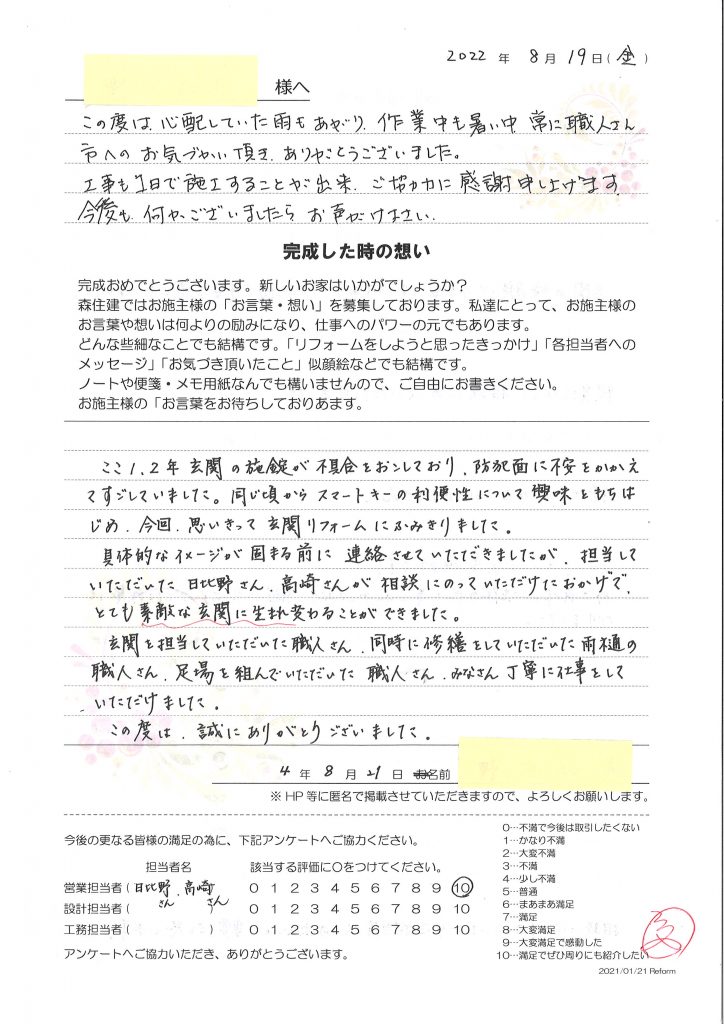 2022 年 8 月 19 日(金)
様へ
この度は、心配していた雨もあがり、作業中も暑い中 常に職人さん
方への お気づかい頂き、ありがとうございました。
工事も1日で施工することが出来、ご協力に感謝申し上げます。
今後も、何かございましたら お声がけ下さい。
完成した時の想い
完成おめでとうございます。新しいお家はいかがでしょうか?
森住建ではお施主様の「お言葉・想い」を募集しております。私達にとって、お施主様の
お言葉や想いは何よりの励みになり、仕事へのパワーの元でもあります。
どんな些細なことでも結構です。「リフォームをしようと思ったきっかけ」「各担当者への
メッセージ」「お気づき頂いたこと」似顔絵などでも結構です。
ノートや便箋・メモ用紙なんでも構いませんので、ご自由にお書きください。
お施主様の「お言葉をお待ちしておりあます。
ここ1、2年 玄関の施錠が不具合をおこしており、防犯面に不安をかかえ
てすごしていました。同じ頃から スマートキーの利便性について 興味をもちは
じめ、今回、思いきって 玄関リフォームにふみきりました。
具体的なイメージが固まる前に 連絡させていただきましたが、担当して
いただいた 日比野さん、高崎さんが 相談にのっていただけたおかげで、
とても素敵な玄関に生まれ変わることができました。
玄関を担当していただいた職人さん、同時に修繕をしていただいた雨樋の
職人さん、足場を組んでいただいた 職人さん、みなさん丁寧に仕事をして
いただけました。
この度は、誠にありがとうございました。
4 年 8 月 21 日 お名前
※HP等に匿名で掲載させていただきますので、よろしくお願いします。
今後の更なる皆様の満足の為に、下記アンケートへご協力ください。
担当者名 該当する評価に○をつけてください。
営業担当者(日比野さん、高崎さん) 0 1 2 3 4 5 6 7 8 9 10
設計担当者( ) 0 1 2 3 4 5 6 7 8 9 10
工務担当者( ) 0 1 2 3 4 5 6 7 8 9 10
アンケートへご協力いただき、ありがとうございます。
0…不満で今後は取引したくない
1…かなり不満
2…大変不満
3…不満
4…少し不満
5…普通
6…まあまあ満足
7…満足
8…大変満足
9…大変満足で感動した
10…満足でぜひ周りにも紹介したい
2021/01/21 Reform